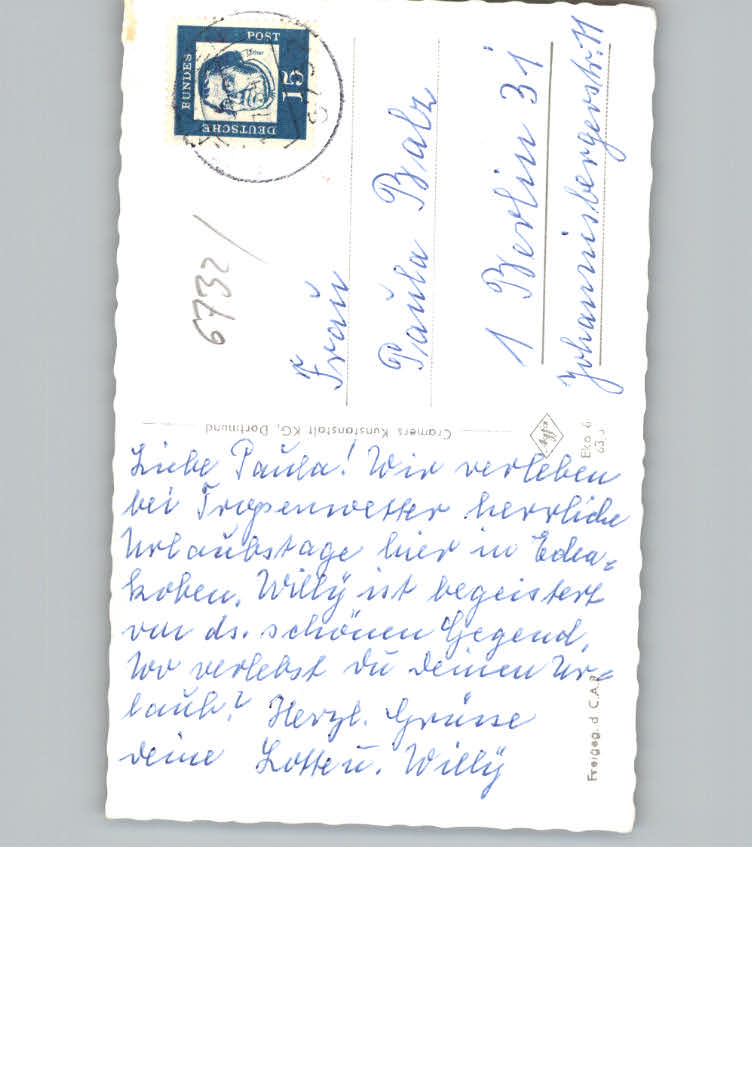 Liebe Paula! Wir verleben
bei Tropenwetter herrliche
Urlaubstage hier in Eden=
koben. Willÿ ist begeistert
von ds. schönen Gegend.
Wo verlebst du deinen Ur=
laub? Herzl. Grüsse
deine Lotte u. Willÿ
Frau
Paula Balz
1 Berlin 31
Johannisbergerstr. 11
6732
DEUTSCHE
BUNDES
POST
15
Cramers Kunstanstalt KG, Dortmund
Agfa
Eko 6
Freigeg. d C.A.P.